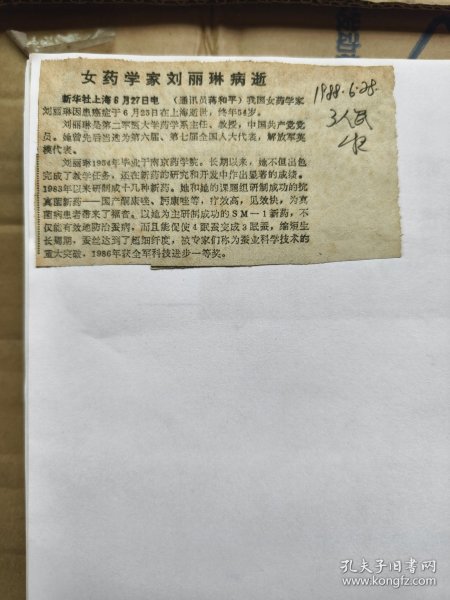 女药学家刘丽琳病逝
新华社上海6月27日电 （通讯员蒋和平）我国女药学家
刘丽琳因患癌症于6月23日在上海逝世，终年54岁。
刘丽琳是第二军医大学药学系主任、教授，中国共产党党
员。她曾先后当选为第六届、第七届全国人大代表，解放军英
模代表。
刘丽琳1954年毕业于南京药学院。长期以来，她不但出色
完成了教学任务，还在新药的研究和开发中作出显著的成绩。
1983年以来研制成十几种新药。她和她的课题组研制成功的抗
真菌新药——国产酮康唑、钙康唑等，疗效高，见效快，为真
菌病患者带来了福音。以她为主研制成功的SM－1新药，不
仅能有效地防治蚕病，而且能促使4眠蚕变成3眠蚕，缩短生
长周期，蚕丝达到了超细纤度，被专家们称为蚕业科学技术的
重大突破，1986年获全军科技进步一等奖。
1988.6.28
3人民
孔夫子旧书网
www.kongfz.com